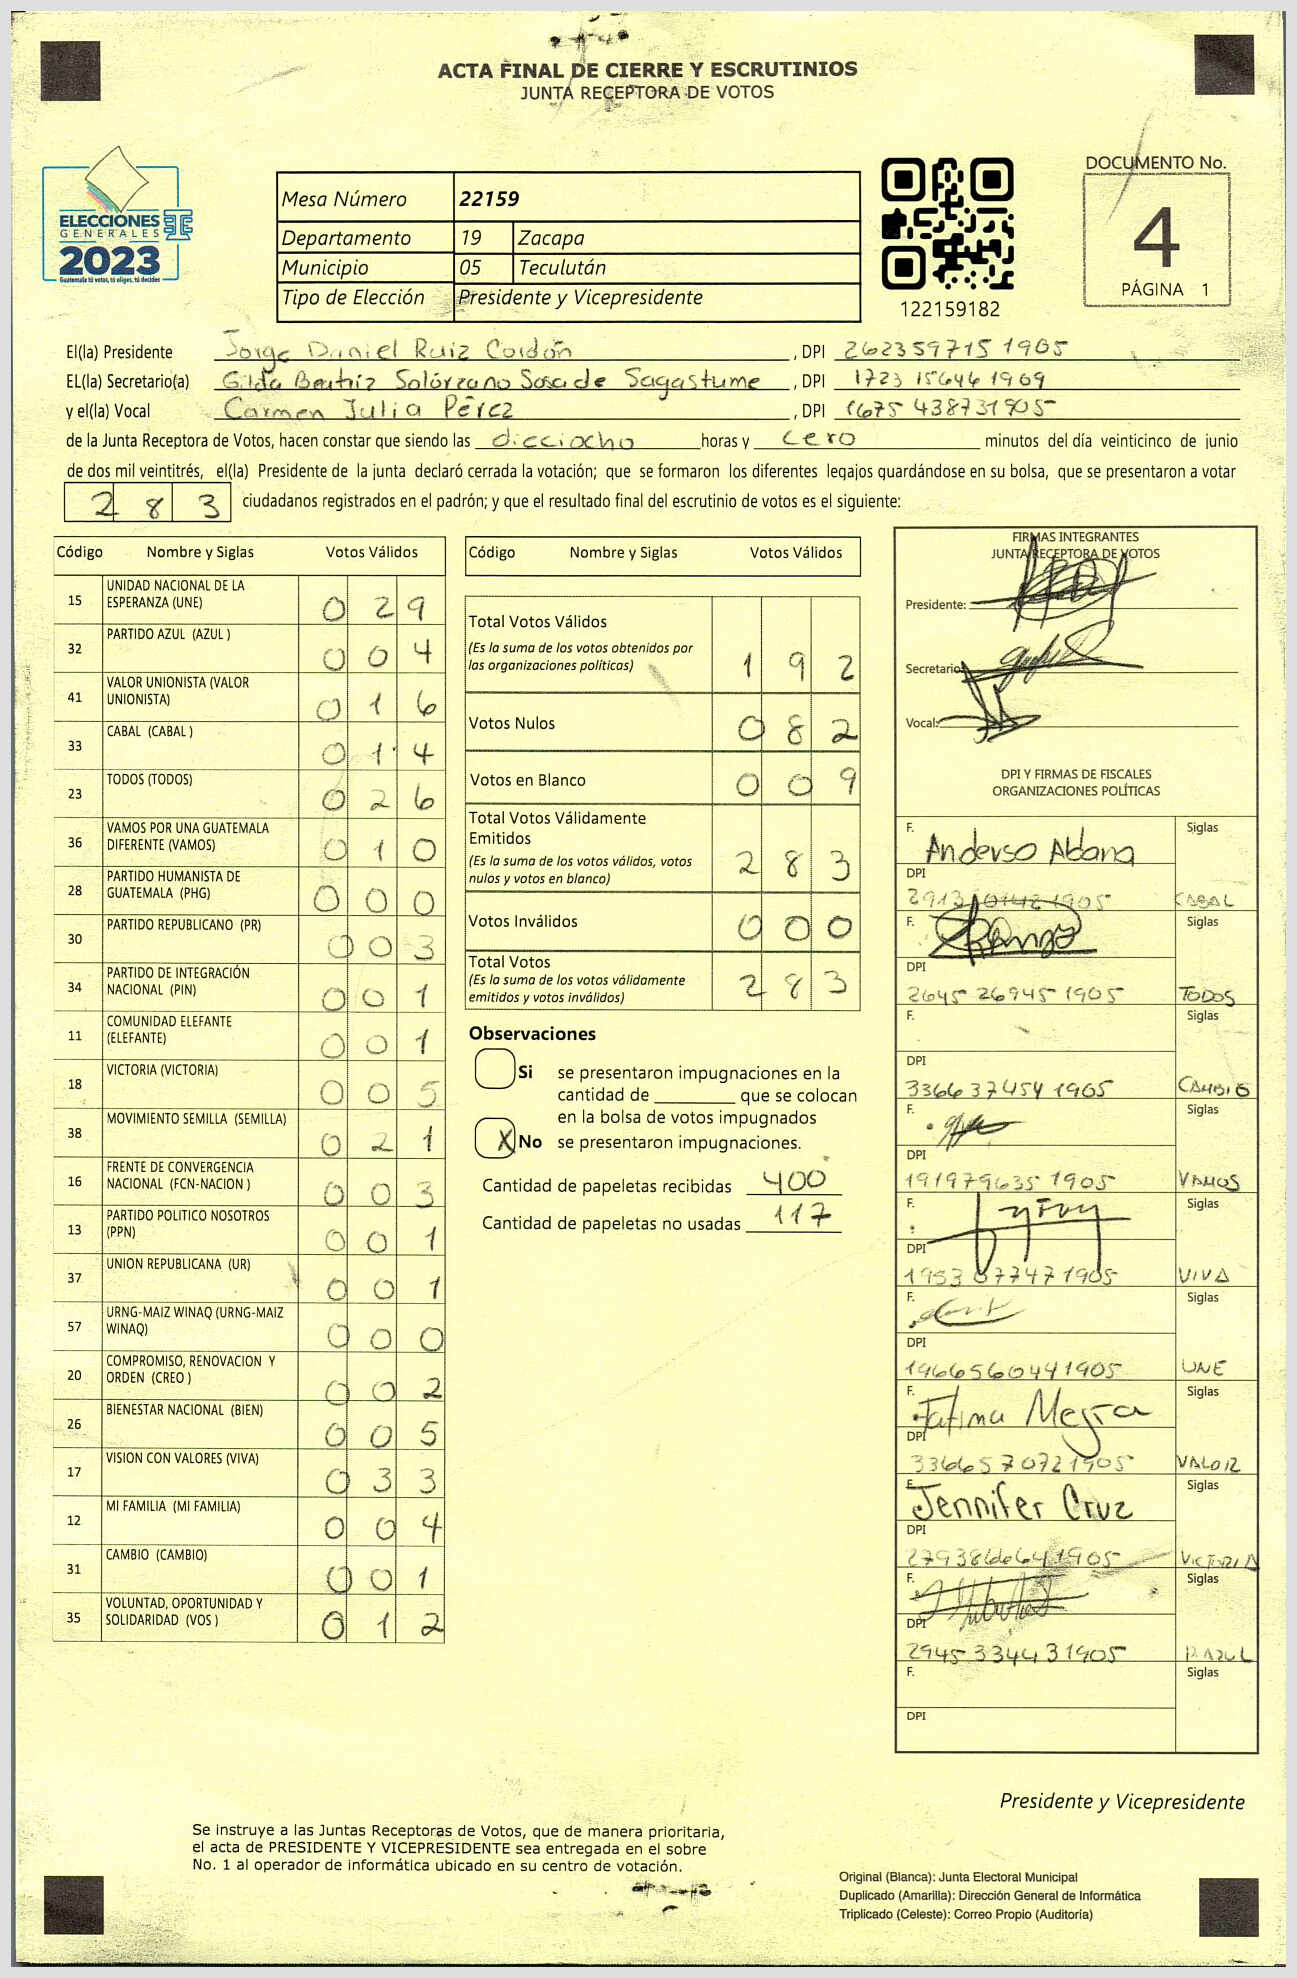 ACTA FINAL DE CIERRE Y ESCRUTINIOS
JUNTA RECEPTORA DE VOTOS
ELECCIONES
GENERALES
2023
Guatemala tú votas, tú eliges, tú decides
Mesa Número 22159
Departamento 19 Zacapa
Municipio 05 Teculután
Tipo de Elección Presidente y Vicepresidente
122159182
DOCUMENTO No.
4
PÁGINA 1
El(la) Presidente Jorge Daniel Ruiz Cordón , DPI 262359715 1905
EL(la) Secretario(a) Gilda Beatriz Solórzano Sosa de Sagastume , DPI 1723 15646 1909
y el(la) Vocal Carmen Julia Pérez , DPI 1675 438731905
de la Junta Receptora de Votos, hacen constar que siendo las dieciocho horas y cero minutos del día veinticinco de junio
de dos mil veintitrés, el(la) Presidente de la junta declaró cerrada la votación; que se formaron los diferentes legajos guardándose en su bolsa, que se presentaron a votar
283 ciudadanos registrados en el padrón; y que el resultado final del escrutinio de votos es el siguiente:
Código Nombre y Siglas Votos Válidos
15 UNIDAD NACIONAL DE LA
ESPERANZA (UNE) 029
32 PARTIDO AZUL (AZUL ) 004
41 VALOR UNIONISTA (VALOR
UNIONISTA) 016
33 CABAL (CABAL ) 014
23 TODOS (TODOS) 026
36 VAMOS POR UNA GUATEMALA
DIFERENTE (VAMOS) 010
28 PARTIDO HUMANISTA DE
GUATEMALA (PHG) 000
30 PARTIDO REPUBLICANO (PR) 003
34 PARTIDO DE INTEGRACIÓN
NACIONAL (PIN) 001
11 COMUNIDAD ELEFANTE
(ELEFANTE) 001
18 VICTORIA (VICTORIA) 005
38 MOVIMIENTO SEMILLA (SEMILLA) 021
16 FRENTE DE CONVERGENCIA
NACIONAL (FCN-NACION ) 003
13 PARTIDO POLITICO NOSOTROS
(PPN) 001
37 UNION REPUBLICANA (UR) 001
57 URNG-MAIZ WINAQ (URNG-MAIZ
WINAQ) 000
20 COMPROMISO, RENOVACION Y
ORDEN (CREO ) 002
26 BIENESTAR NACIONAL (BIEN) 005
17 VISION CON VALORES (VIVA) 033
12 MI FAMILIA (MI FAMILIA) 004
31 CAMBIO (CAMBIO) 001
35 VOLUNTAD, OPORTUNIDAD Y
SOLIDARIDAD (VOS ) 012
Código Nombre y Siglas Votos Válidos
Total Votos Válidos
(Es la suma de los votos obtenidos por
las organizaciones políticas) 192
Votos Nulos 082
Votos en Blanco 009
Total Votos Válidamente
Emitidos
(Es la suma de los votos válidos, votos
nulos y votos en blanco) 283
Votos Inválidos 000
Total Votos
(Es la suma de los votos válidamente
emitidos y votos inválidos) 283
Observaciones
Si se presentaron impugnaciones en la
cantidad de ________ que se colocan
en la bolsa de votos impugnados
X No se presentaron impugnaciones.
Cantidad de papeletas recibidas 400
Cantidad de papeletas no usadas 117
FIRMAS INTEGRANTES
JUNTA RECEPTORA DE VOTOS
Presidente:
Secretario
Vocal:
DPI Y FIRMAS DE FISCALES
ORGANIZACIONES POLÍTICAS
F. Siglas
Anderso Aldana
DPI
CABAL
F. Siglas
DPI
2645 26945 1905 TODOS
F. Siglas
DPI
3366 37454 1905 CAMBIO
F. Siglas
DPI
191979635 1905 VAMOS
F. Siglas
DPI
1953 077471905 VIVA
F. Siglas
DPI
1966560441905 UNE
F. Siglas
Fatima Mejía
DPI
3366570721905 VALOR
F. Siglas
Jennifer Cruz
DPI
2793866641905 VICTORIA
F. Siglas
DPI
2945 334431905 P. AZUL
F. Siglas
DPI
Presidente y Vicepresidente
Se instruye a las Juntas Receptoras de Votos, que de manera prioritaria,
el acta de PRESIDENTE Y VICEPRESIDENTE sea entregada en el sobre
No. 1 al operador de informática ubicado en su centro de votación.
Original (Blanca): Junta Electoral Municipal
Duplicado (Amarilla): Dirección General de Informática
Triplicado (Celeste): Correo Propio (Auditoría)